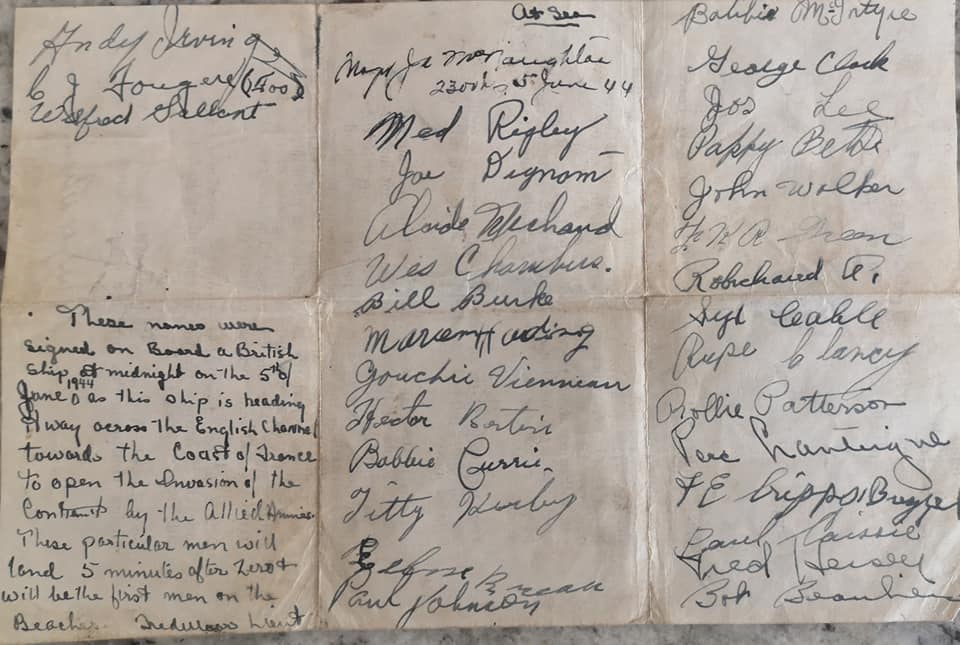 Andy Irving
C J Fougere
Wilfred Gallant
These names were
signed on Board a British
Ship at midnight on the 5th of
June 1944 as this ship is heading
away across the English Channel
towards the Coast of France
to open the Invasion of the
Continent by the Allied Armies.
These particular men will
land 5 minutes after Zero &
will be the first men on the
Beaches
At Sea
McNaughton
2300 hrs 5 June 44
Med Rigley
Joe Dignom
Michaud
Wes Chambers.
Bill Burke
Harding
Gouchie Vienneau
Hector Bertin
Bobbie Currie
Titty Kirby
Paul Johnson
Bobbie McIntyre
George Clark
Jos Lee
Pappy Betts
John Walker
Green
Robichaud A.
Syd Cahill
Rupe Clancy
Rollie Patterson
Fred Hersey
Bob Beaulieu